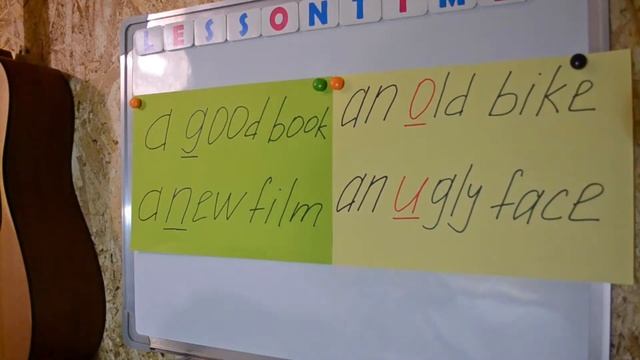 LESSON TIME
a good book
a new film
an old bike
an ugly face